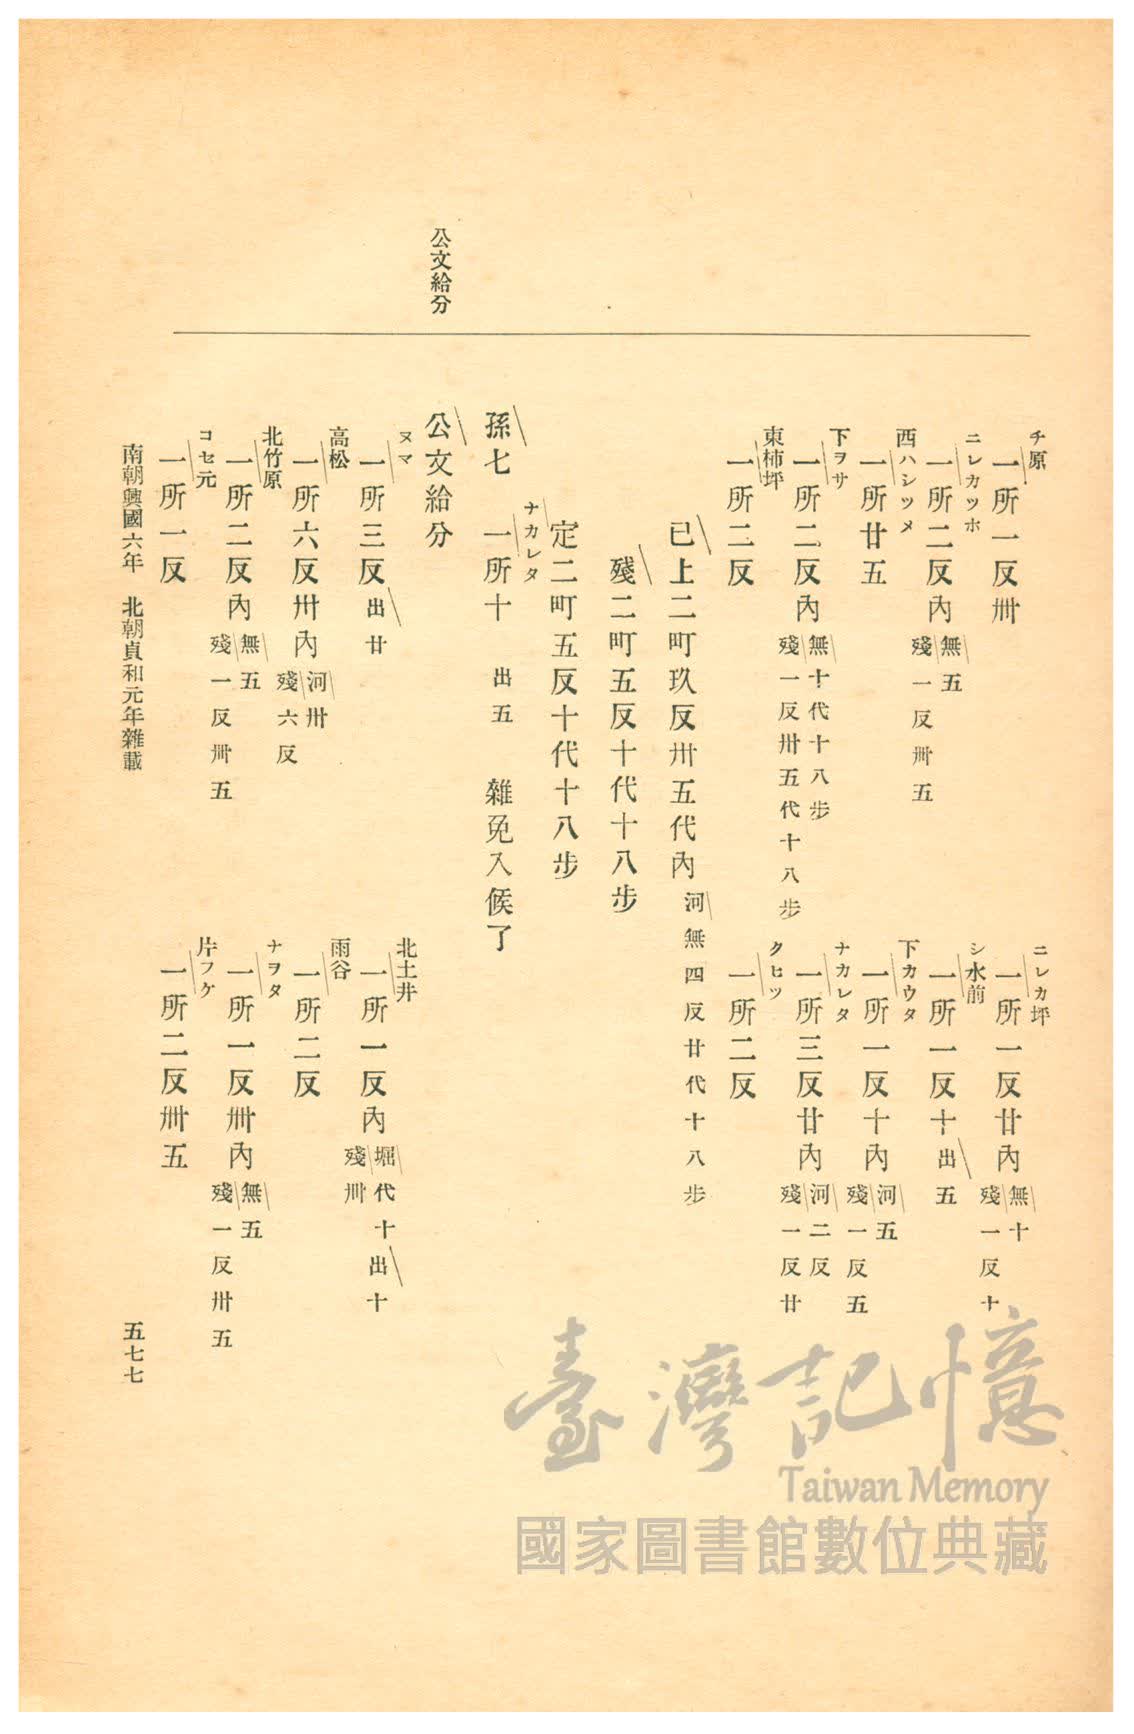 公文給分
チ原
一所一反卌
ニレカ坪
一所一反廿內 無十 殘一反十
ニレカツホ
一所二反內 無五 殘一反卌五
シ水前
一所一反十 出五
西ハシツメ
一所廿五
下カウタ
一所一反十內 河五 殘一反五
下ヲサ
一所二反內 無十代十八步 殘一反卅五代十八步
ナカレタ
一所三反廿內 河二反 殘一反廿
東柿坪
一所二反
クヒツ
一所二反
已上二町玖反卅五代內 河無四反廿代十八步
殘二町五反十代十八步
定二町五反十代十八步
ナカレタ
孫七 一所十 出五 雜免入候了
公文給分
ヌマ
一所三反 出廿
北土井
一所一反內 堀代十出十 殘卌
高松
一所六反卅內 河卅 殘六反
雨谷
一所二反
北竹原
一所二反內 無五 殘一反卌五
ナヲタ
一所一反卌內 無五 殘一反卅五
コセ元
一所一反
片フケ
一所二反卌五
南朝興國六年 北朝貞和元年雜載
五七七
臺灣記憶
Taiwan Memory
國家圖書館數位典藏